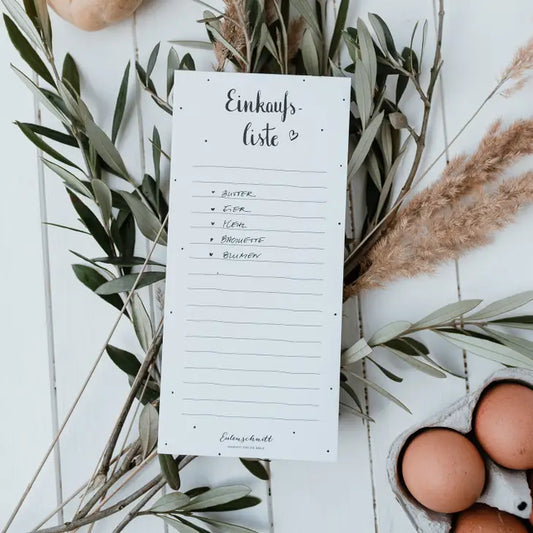 Einkaufs-
liste ♡
♥ BUTTER
♥ EIER
♥ MEHL
♥ BAGUETTE
♥ BLUMEN
Eulenschnitt